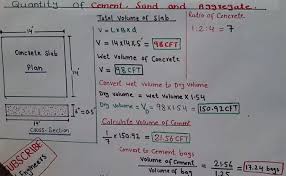 Quantity of Cement, Sand and Aggregate.
14'
Concrete Slab
Plan
14'
t"=0.5'
Cross-Section
SUBSCRIBE
Engineers
Total Volume of Slab
V = L×B×d
V = 14×14×5' = 98 CFT
Wet Volume of Concrete
V = 98 CFT
Convert Wet Volume to Dry Volume
Dry Volume = Wet Volume × 1.54
Dry Volume = V = 98×1.54 = 150.92 CFT
Calculate Volume of Cement
1/7 × 150.92 = 21.56 CFT
Convert to Cement bags
Volume of Cement / Volume of bag = 21.56 / 1.25 = 17.24 bags
Ratio of Concrete
1:2:4 = 7